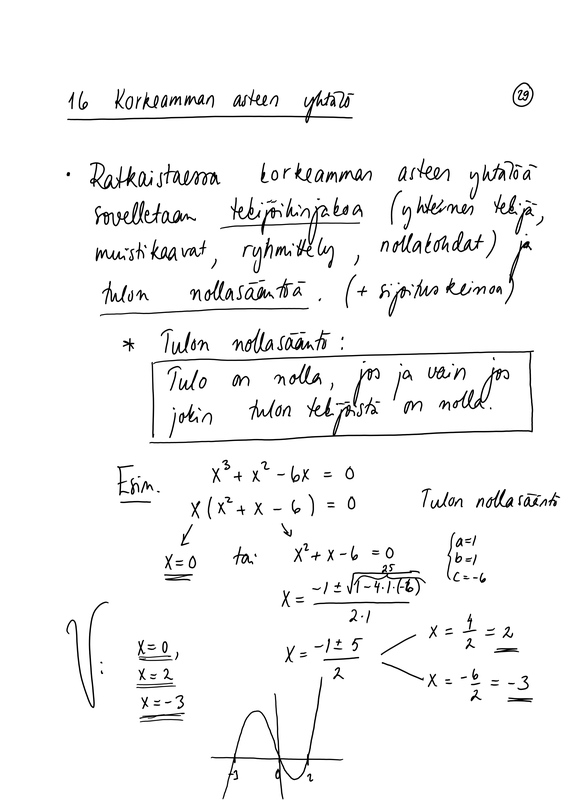 16 Korkeamman asteen yhtälö
29
• Ratkaistaessa korkeamman asteen yhtälöä
sovelletaan tekijöihinjakoa (yhteinen tekijä,
muistikaavat, ryhmittely, nollakohdat) ja
tulon nollasääntöä. (+ sijoituskeinoa)
* Tulon nollasääntö:
Tulo on nolla, jos ja vain jos
jokin tulon tekijöistä on nolla.
Esim. x³ + x² - 6x = 0
x(x² + x - 6) = 0 Tulon nollasääntö
x=0 tai x² + x - 6 = 0
a=1
b=1
c=-6
25
x = (-1 ± √(1-4·1·(-6)))/(2·1)
x = (-1 ± 5)/2
x = 4/2 = 2
x = -6/2 = -3
V:
x=0,
x=2
x=-3
-3 0 2